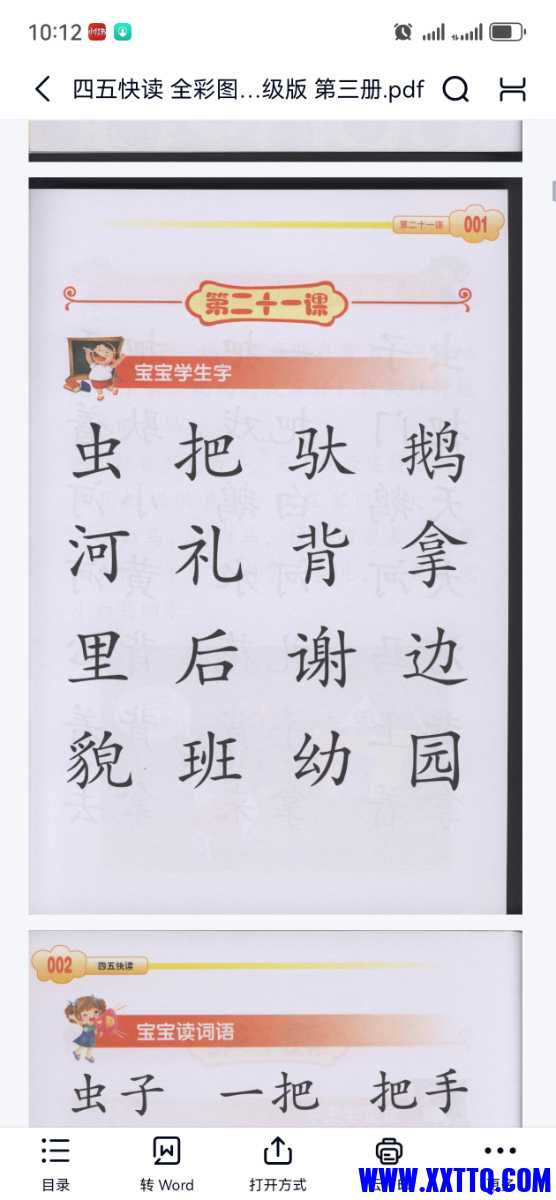 10:12 小红书
四五快读 全彩图...级版 第三册.pdf
第二十一课 001
第二十一课
宝宝学生字
虫 把 驮 鹅
河 礼 背 拿
里 后 谢 边
貌 班 幼 园
002 四五快读
宝宝读词语
虫子 一把 把手
目录 转 Word 打开方式
WWW.XXTTQ.COM